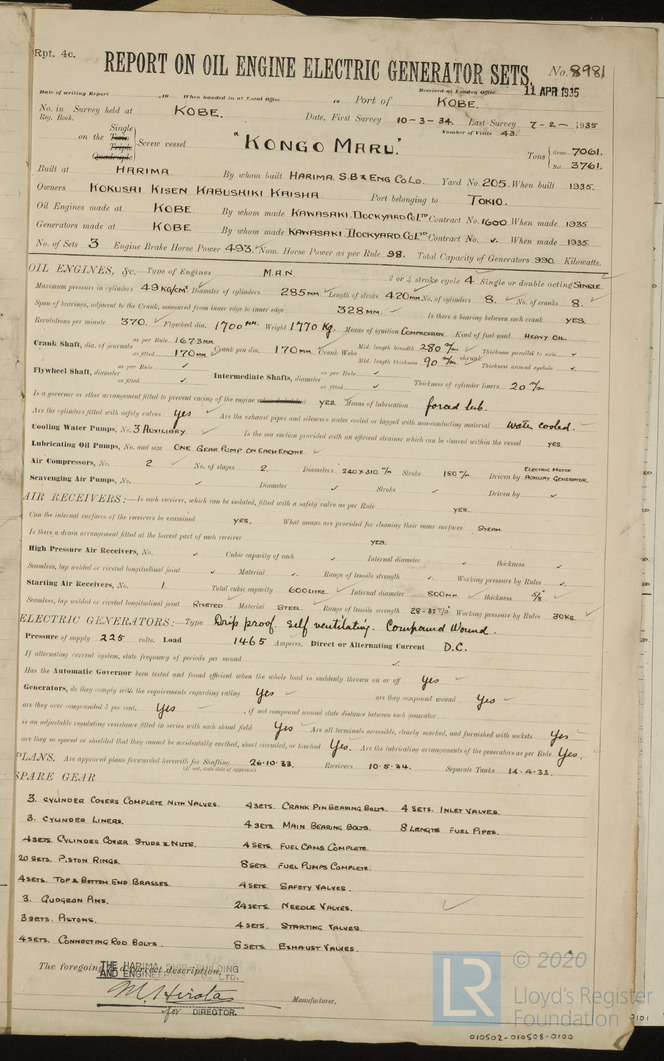 Rpt. 4c.
REPORT ON OIL ENGINE ELECTRIC GENERATOR SETS.
No. 8981
Received at London Office 11 APR 1935
Date of writing Report 19 When handed in at Local Office 19 Port of KOBE.
No. in Reg. Book. Survey held at KOBE. Date, First Survey 10-3-34. Last Survey 7-2-1935
Number of Visits 43.
on the Single Twin Triple Quadruple Screw vessel "KONGO MARU". Tons Gross 7061. Net 3761.
Built at HARIMA. By whom built HARIMA S.B & ENG CO LD. Yard No. 205. When built 1935.
Owners KOKUSAI KISEN KABUSHIKI KAISHA. Port belonging to TOKIO.
Oil Engines made at KOBE By whom made KAWASAKI DOCKYARD CO LTD Contract No. 1600 When made 1935
Generators made at KOBE By whom made KAWASAKI DOCKYARD CO LTD Contract No. ✓. When made 1935
No. of Sets 3 Engine Brake Horse Power 493. Nom. Horse Power as per Rule 98. Total Capacity of Generators 990 Kilowatts.
OIL ENGINES, &c.—Type of Engines M.A.N. 2 or 4 stroke cycle 4 Single or double acting SINGLE.
Maximum pressure in cylinders 49 KG/CM² Diameter of cylinders 285 MM. Length of stroke 420 MM No. of cylinders 8. No. of cranks 8.
Span of bearings, adjacent to the Crank, measured from inner edge to inner edge 328 MM. Is there a bearing between each crank YES.
Revolutions per minute 370. Flywheel dia. 1700 MM. Weight 1770 Kg. Means of ignition COMPRESSION Kind of fuel used HEAVY OIL.
Crank Shaft, dia. of journals as per Rule 167.3 MM as fitted 170 MM Crank pin dia. 170 MM Crank Webs Mid. length breadth 280 m/m Mid. length thickness 90 m/m shrunk Thickness parallel to axis ✓ Thickness around eyehole ✓
Flywheel Shaft, diameter as per Rule ✓ as fitted ✓ Intermediate Shafts, diameter as per Rule ✓ as fitted ✓ Thickness of cylinder liners 20 m/m
Is a governor or other arrangement fitted to prevent racing of the engine YES Means of lubrication forced lub.
Are the cylinders fitted with safety valves yes Are the exhaust pipes and silencers water cooled or lagged with non-conducting material water cooled.
Cooling Water Pumps, No. 3 AUXILIARY. Is the sea suction provided with an efficient strainer which can be cleared within the vessel YES
Lubricating Oil Pumps, No. and size ONE GEAR PUMP ON EACH ENGINE.
Air Compressors, No. 2 No. of stages 2. Diameters 240 x 310 m/m Stroke 180 m/m Driven by ELECTRIC MOTOR AUXILIARY GENERATOR.
Scavenging Air Pumps, No. ✓ Diameter ✓ Stroke ✓ Driven by ✓
AIR RECEIVERS:—Is each receiver, which can be isolated, fitted with a safety valve as per Rule YES.
Can the internal surfaces of the receivers be examined YES. What means are provided for cleaning their inner surfaces STEAM
Is there a drain arrangement fitted at the lowest part of each receiver YES.
High Pressure Air Receivers, No. ✓ Cubic capacity of each ✓ Internal diameter ✓ thickness ✓
Seamless, lap welded or riveted longitudinal joint ✓ Material ✓ Range of tensile strength ✓ Working pressure by Rules ✓
Starting Air Receivers, No. 1. Total cubic capacity 600 LITRE. Internal diameter 800 MM thickness 5/8"
Seamless, lap welded or riveted longitudinal joint RIVETED. Material STEEL. Range of tensile strength Working pressure by Rules 30 KG.
ELECTRIC GENERATORS:—Type Drip proof. Self ventilating. Compound Wound.
Pressure of supply 225 volts. Load 1465 Amperes. Direct or Alternating Current D.C.
If alternating current system, state frequency of periods per second ✓
Has the Automatic Governor been tested and found efficient when the whole load is suddenly thrown on or off Yes
Generators, do they comply with the requirements regarding rating Yes are they compound wound Yes
are they over compounded 5 per cent. Yes, if not compound wound state distance between each generator
is an adjustable regulating resistance fitted in series with each shunt field Yes Are all terminals accessible, clearly marked, and furnished with sockets Yes
are they so spaced or shielded that they cannot be accidentally earthed, short circuited, or touched Yes. Are the lubricating arrangements of the generators as per Rule Yes.
PLANS. Are approved plans forwarded herewith for Shafting 26.10.33. Receivers 10.5.34. Separate Tanks 14.4.33.
(If not, state date of approval)
SPARE GEAR
3. CYLINDER COVERS COMPLETE WITH VALVES. 4 SETS. CRANK PIN BEARING BOLTS. 4 SETS. INLET VALVES.
3. CYLINDER LINERS. 4 SETS. MAIN BEARING BOLTS. 8 LENGTHS FUEL PIPES.
4 SETS. CYLINDER COVER STUDS & NUTS. 4 SETS. FUEL CAMS COMPLETE.
20 SETS. PISTON RINGS. 8 SETS. FUEL PUMPS COMPLETE.
4 SETS. TOP & BOTTOM END BRASSES. 4 SETS. SAFETY VALVES.
3. GUDGEON PINS. 24 SETS. NEEDLE VALVES.
3 SETS. PISTONS. 4 SETS. STARTING VALVES.
4 SETS. CONNECTING ROD BOLTS. 8 SETS. EXHAUST VALVES.
The foregoing is a correct description,
THE HARIMA SHIPBUILDING AND ENGINEERING CO., LTD.
M. Hirota Manufacturer.
for DIRECTOR.
© 2020
LR
Lloyd's Register
Foundation
010502-010508-0100